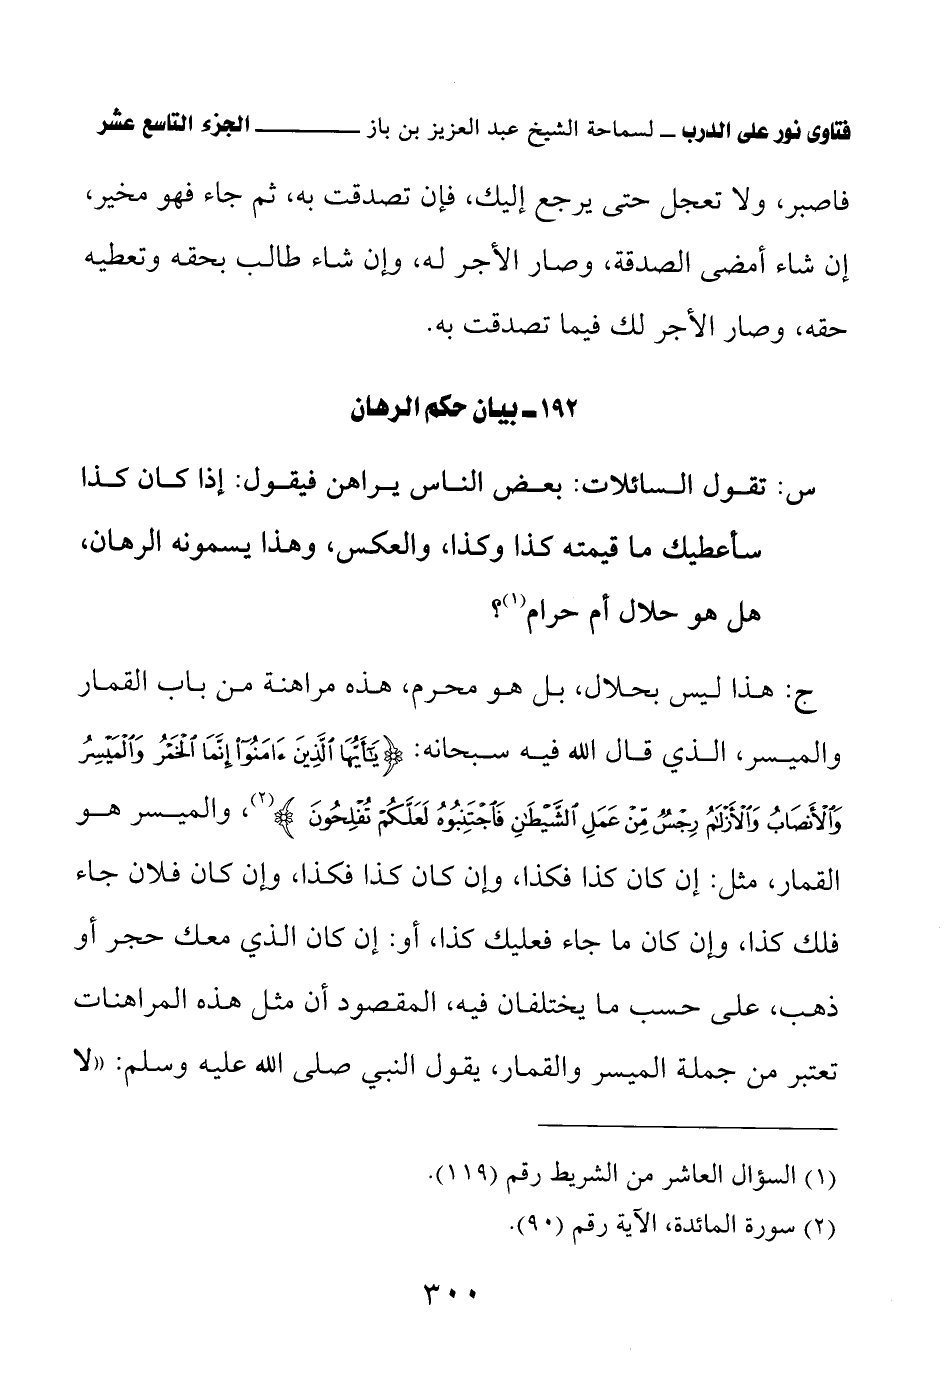 فتاوى نور على الدرب ــ لسماحة الشيخ عبد العزيز بن باز ــــــــــــ الجزء التاسع عشر
فاصبر، ولا تعجل حتى يرجع إليك، فإن تصدقت به، ثم جاء فهو مخير،
إن شاء أمضى الصدقة، وصار الأجر له، وإن شاء طالب بحقه وتعطيه
حقه، وصار الأجر لك فيما تصدقت به.
١٩٢ ـ بيان حكم الرهان
س: تقول السائلات: بعض الناس يراهن فيقول: إذا كان كذا
سأعطيك ما قيمته كذا وكذا، والعكس، وهذا يسمونه الرهان،
هل هو حلال أم حرام(١)؟
ج: هذا ليس بحلال، بل هو محرم، هذه مراهنة من باب القمار
والميسر، الذي قال الله فيه سبحانه: ﴿يَٰٓأَيُّهَا ٱلَّذِينَ ءَامَنُوٓا۟ إِنَّمَا ٱلْخَمْرُ وَٱلْمَيْسِرُ
وَٱلْأَنصَابُ وَٱلْأَزْلَٰمُ رِجْسٌ مِّنْ عَمَلِ ٱلشَّيْطَٰنِ فَٱجْتَنِبُوهُ لَعَلَّكُمْ تُفْلِحُونَ﴾(٢)، والميسر هو
القمار، مثل: إن كان كذا فكذا، وإن كان كذا فكذا، وإن كان فلان جاء
فلك كذا، وإن كان ما جاء فعليك كذا، أو: إن كان الذي معك حجر أو
ذهب، على حسب ما يختلفان فيه، المقصود أن مثل هذه المراهنات
تعتبر من جملة الميسر والقمار، يقول النبي صلى الله عليه وسلم: «لا
(١) السؤال العاشر من الشريط رقم (١١٩).
(٢) سورة المائدة، الآية رقم (٩٠).
٣٠٠